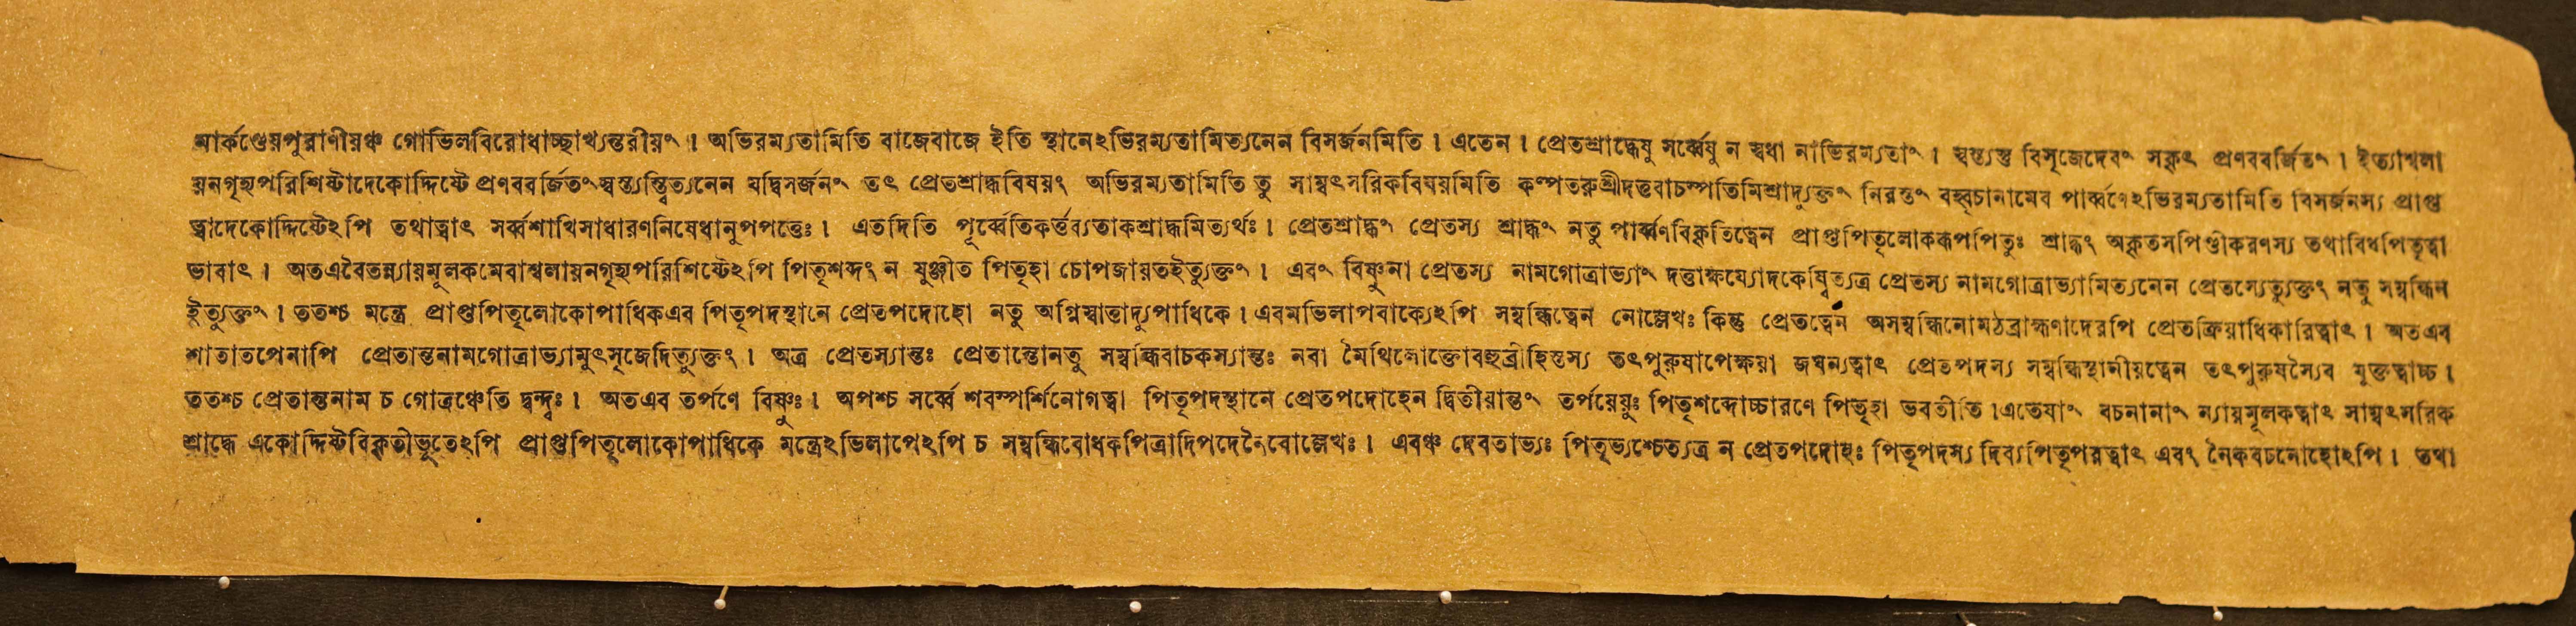 মার্কণ্ডেয়পুরাণীয়ঞ্চ গোভিলবিরোধাচ্ছাখ্যন্তরীয়ং । অভিরম্যতামিতি বাজেবাজে ইতি স্থানেঽভিরম্যতামিত্যনেন বিসর্জনমিতি । এতেন । প্রেতশ্রাদ্ধেষু সর্ব্বেষু ন স্বধা নাভিরম্যতাং । স্বস্ত্যস্তু বিসৃজেদেবং সকৃৎ প্রণববর্জিতং । ইত্যাশ্বলা
য়নগৃহ্যপরিশিষ্টাদেকোদ্দিষ্টে প্রণববর্জিতংস্বস্ত্যস্ত্বিত্যনেন যদ্বিসর্জনং তৎ প্রেতশ্রাদ্ধবিষয়ং অভিরম্যতামিতি তু সাম্বৎসরিকবিষয়মিতি কল্পতরুশ্রীদত্তবাচস্পতিমিশ্রাদ্যুক্তং নিরস্তং বহ্বৃচানামেব পার্ব্বণেঽভিরম্যতামিতি বিসর্জনস্য প্রাপ্ত
ত্বাদেকোদ্দিষ্টেঽপি তথাত্বাৎ সর্ব্বশাখিসাধারণনিষেধানুপপত্তেঃ । এতদিতি পূর্ব্বেতিকর্ত্তব্যতাকশ্রাদ্ধমিত্যর্থঃ । প্রেতশ্রাদ্ধং প্রেতস্য শ্রাদ্ধং নতু পার্ব্বণবিকৃতিত্বেন প্রাপ্তপিতৃলোকরূপপিতুঃ শ্রাদ্ধং অকৃতসপিণ্ডীকরণস্য তথাবিধপিতৃত্বা
ভাবাৎ । অতএবৈতন্ন্যায়মূলকমেবাশ্বলায়নগৃহ্যপরিশিষ্টেঽপি পিতৃশব্দং ন যুঞ্জীত পিতৃহা চোপজায়তইত্যুক্তং । এবং বিষ্ণুনা প্রেতস্য নামগোত্রাভ্যাং দত্তাক্ষয্যোদকেষ্বিত্যত্র প্রেতস্য নামগোত্রাভ্যামিত্যনেন প্রেতস্যেত্যুক্তং নতু সম্বন্ধিন
ইত্যুক্তং । ততশ্চ মন্ত্রে প্রাপ্তপিতৃলোকোপাধিকএব পিতৃপদস্থানে প্রেতপদোহো নতু অগ্নিষ্বাত্তাদ্যুপাধিকে । এবমভিলাপবাক্যেঽপি সম্বন্ধিত্বেন নোল্লেখঃ কিন্তু প্রেতত্বেন অসম্বন্ধিনোমঠব্রাহ্মণাদেরপি প্রেতক্রিয়াধিকারিত্বাৎ । অতএব
শাতাতপেনাপি প্রেতান্তনামগোত্রাভ্যামুৎসৃজেদিত্যুক্তং । অত্র প্রেতস্যান্তঃ প্রেতান্তোনতু সম্বন্ধিবাচকস্যান্তঃ নবা মৈথিলোক্তোবহুব্রীহিস্তস্য তৎপুরুষাপেক্ষয়া জঘন্যত্বাৎ প্রেতপদস্য সম্বন্ধিস্থানীয়ত্বেন তৎপুরুষস্যৈব যুক্তত্বাচ্চ ।
ততশ্চ প্রেতান্তনাম চ গোত্রঞ্চেতি দ্বন্দ্বঃ । অতএব তর্পণে বিষ্ণুঃ । অপশ্চ সর্ব্বে শবস্পর্শিনোগত্বা পিতৃপদস্থানে প্রেতপদোহেন দ্বিতীয়ান্তং তর্পয়েয়ুঃ পিতৃশব্দোচ্চারণে পিতৃহা ভবতীতি ।এতেষাং বচনানাং ন্যায়মূলকত্বাৎ সাম্বৎসরিক
শ্রাদ্ধে একোদ্দিষ্টবিকৃতীভূতেঽপি প্রাপ্তপিতৃলোকোপাধিকে মন্ত্রেঽভিলাপেঽপি চ সম্বন্ধিবোধকপিত্রাদিপদেনৈবোল্লেখঃ । এবঞ্চ দেবতাভ্যঃ পিতৃভ্যশ্চেত্যত্র ন প্রেতপদোহঃ পিতৃপদস্য দিব্যপিতৃপরত্বাৎ এবং নৈকবচনোহোঽপি । তথা